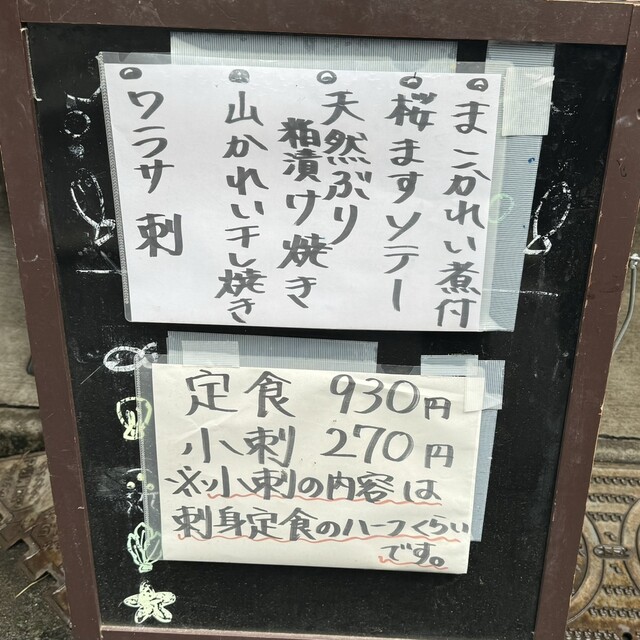 まこかれい煮付
桜ますソテー
天然ぶり
粕漬け焼き
山かれい干し焼き
ワラサ 刺
定食 930円
小刺 270円
※小刺の内容は
刺身定食のハーフくらい
です。